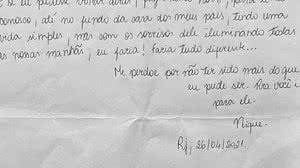 nosso, ali no fundo da casa dos meus pais, tendo uma
vida simples, mas com os sorrisos dele iluminando todas
as nossas manhãs, eu faria! Faria tudo diferente...
Me perdoe por não ter sido mais do que
eu pude ser. Pra você e
para ele.
Nique.
Rj, 26/04/2021.